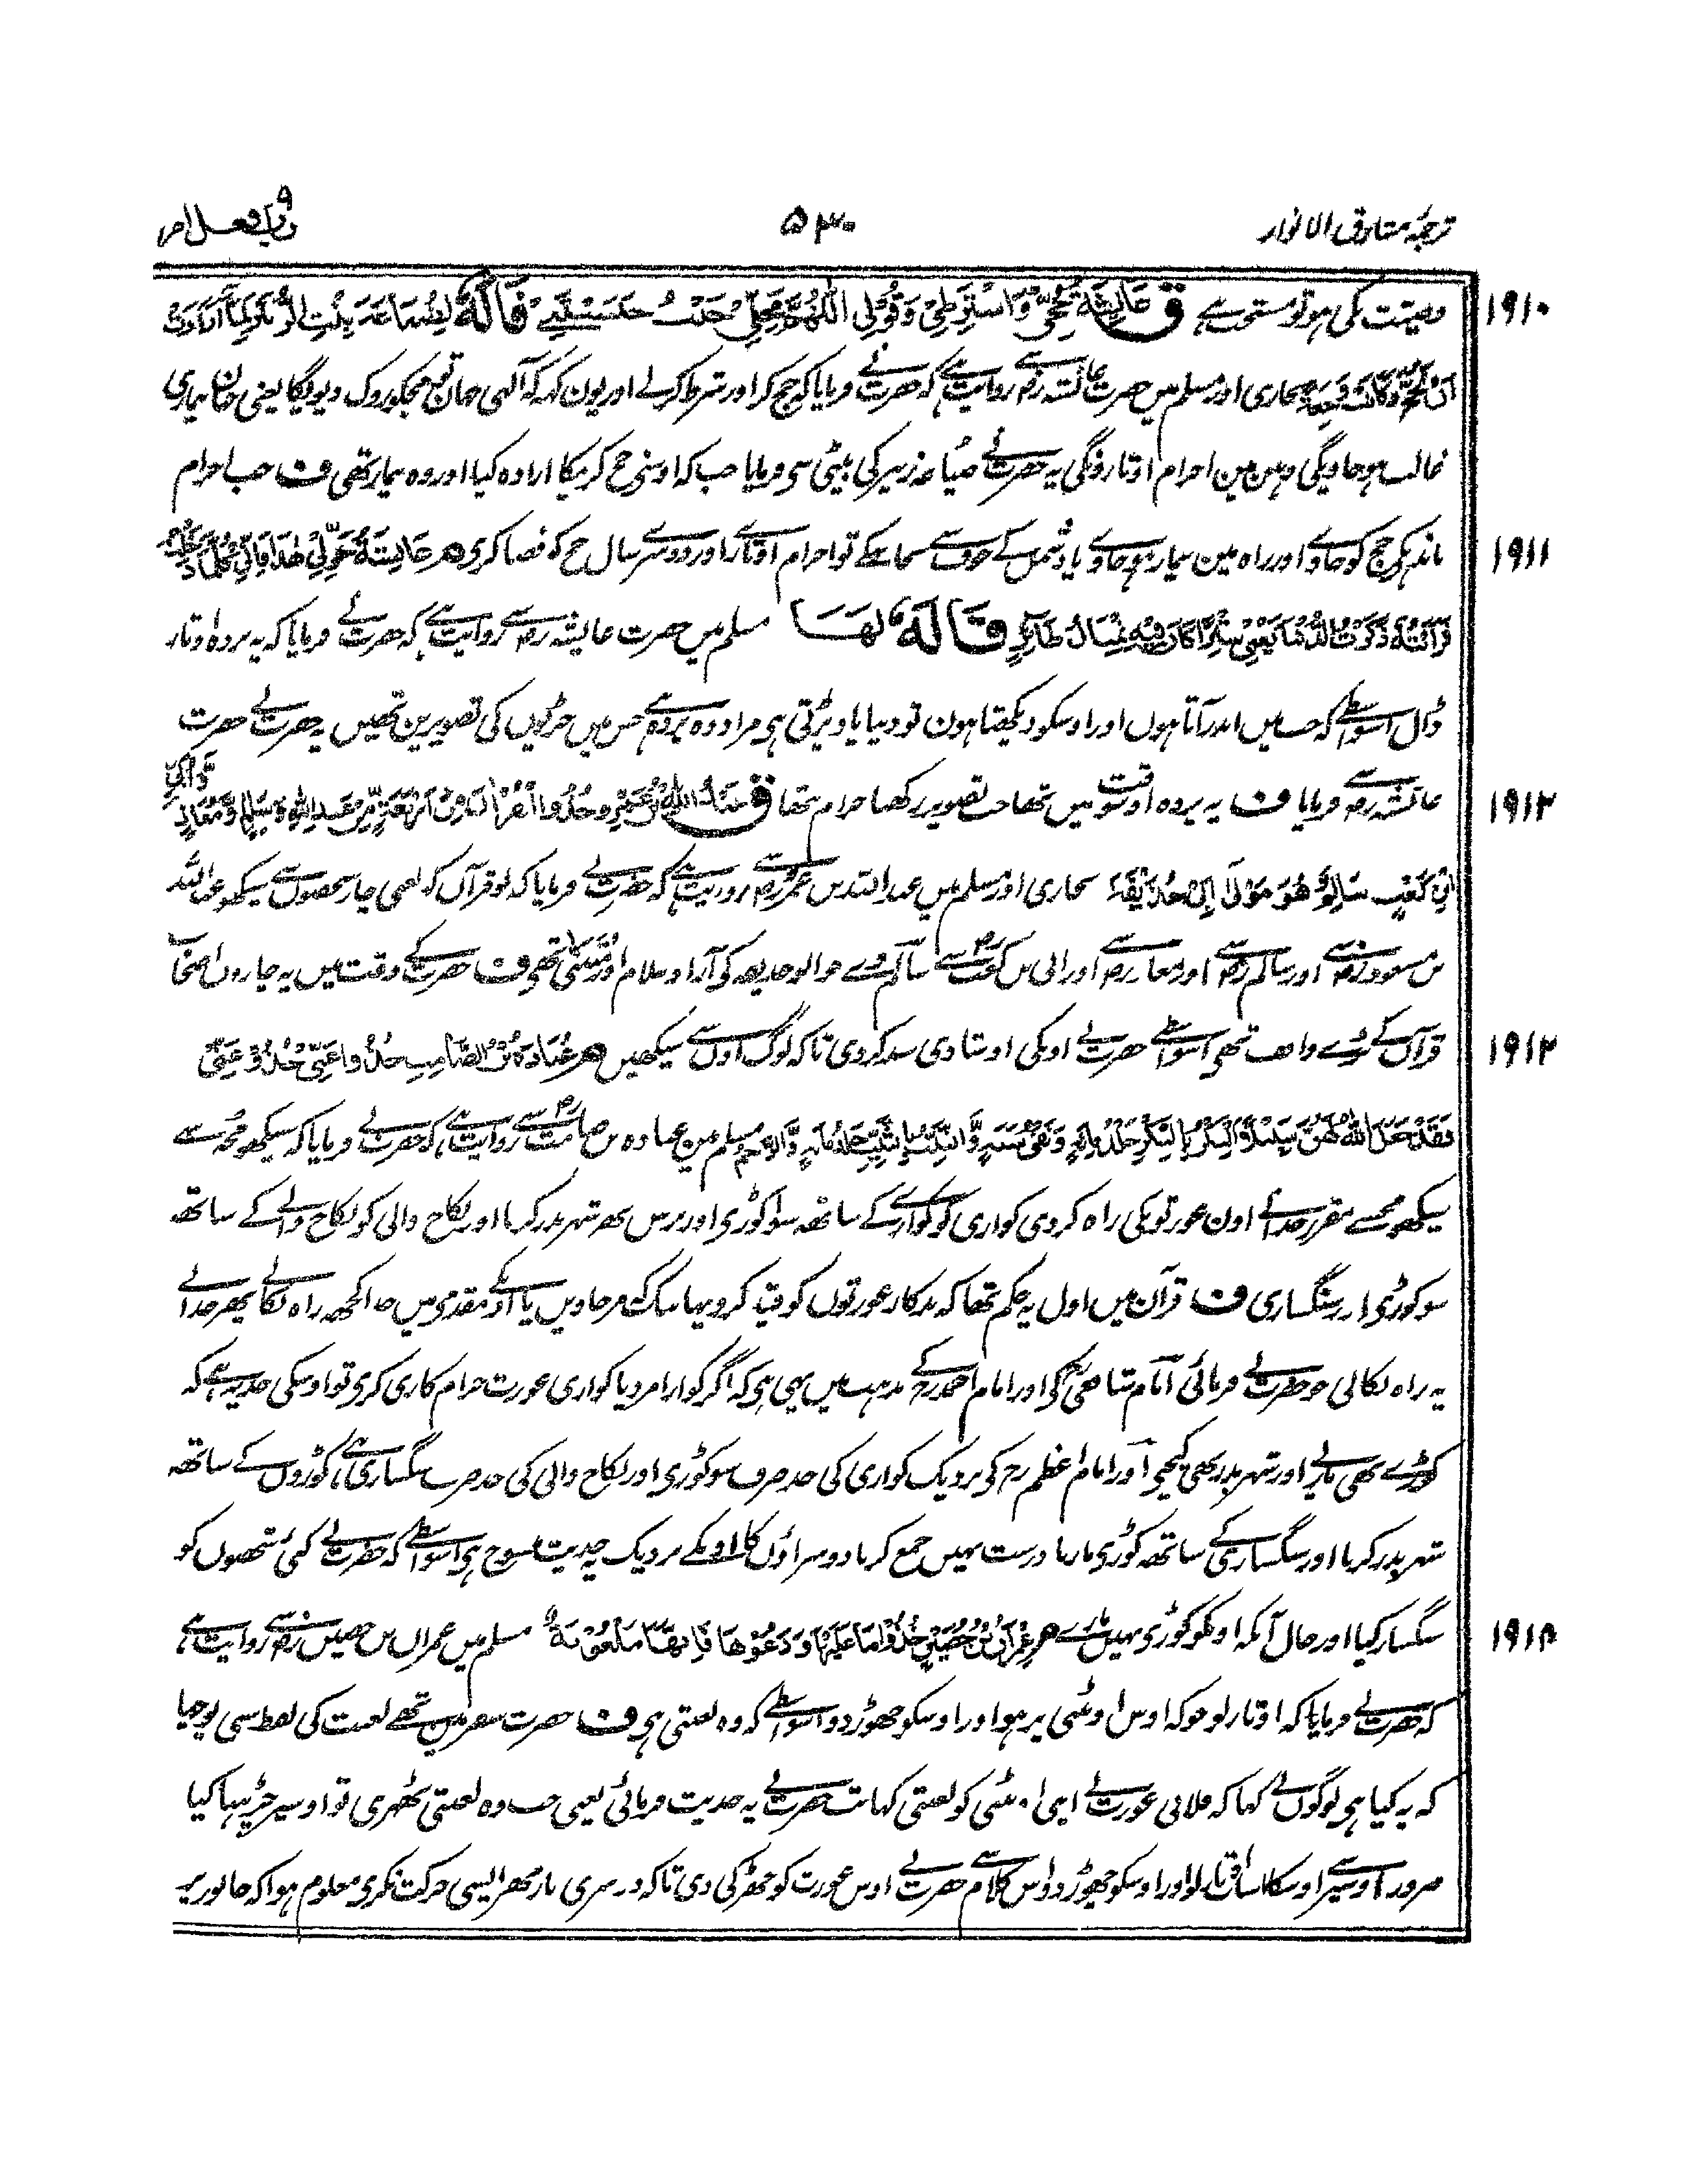 ترجمۂ مشارق الانوار
۵۳۰
باب ۹ فصل امر
۱۹۱۰
وصیت کی ہو تو مستحب ہے ق عَائِشَةُ حُجِّيْ وَاشْتَرِطِيْ وَقُوْلِي اَللّٰهُمَّ مَحِلِّيْ حَيْثُ حَبَسْتَنِيْ قَالَهٗ لِضُبَاعَةَ بِنْتِ الزُّبَيْرِ لَمَّا اَرَادَتْ
بخاری اور مسلم میں حضرت عائشہ رضہ سے روایت ہے کہ حضرت نے فرمایا کہ حج کر اور شرط کر لے اور یون کہہ کہ آلہی جہان تو مجکو روک دیویگا یعنی جہان بیماری
غالب ہو جاویگی وہین مین احرام اوتارونگی یہ حضرت نے ضباعہ زبیر کی بیٹی سی فرمایا جب کہ اوسنی حج کرنیکا ارادہ کیا اور وہ بیمار تھی ف جب احرام
۱۹۱۱
باندہ کر حج کو جاوے اور راہ مین بیمار ہو جاوے یا دشمن کے خوف سے نجا سکے تو احرام اوتارے اور دوسرے سال حج کو قضا کری م عَائِشَةُ حَوِّلِيْ هٰذَا فَاِنِّيْ كُلَّمَا دَخَلْتُ
فَرَاَيْتُهٗ ذَكَرْتُ الدُّنْيَا يَعْنِيْ سِتْرًا كَانَ فِيْهِ تِمْثَالُ طَائِرٍ قَالَهٗ لَهَا مسلم میں حضرت عایشہ رضہ سے روایت ہے کہ حضرت نے فرمایا کہ یہ پردہ اوتار
ڈال اسواسطے کہ جب میں اندر آتا ہوں اور اوسکو دیکھتا ہون تو دنیا یاد پڑتی ہی مراد وہ پردہ ہے جس میں چڑیوں کی تصویرین تھیں یہ حضرت نے حضرت
۱۹۱۲
عائشہ رضہ سے فرمایا ف یہ پردہ اوسوقت میں تھا جب تصویر رکھنا حرام نتھا ق عَبْدُ اللّٰهِ بْنُ عَمْرٍو خُذُوا الْقُرْاٰنَ مِنْ اَرْبَعَةٍ مِّنْ عَبْدِ اللّٰهِ وَسَالِمٍ وَّمُعَاذٍ وَّاُبَيِّ
بْنِ كَعْبٍ سَالِمٌ هُوَ مَوْلٰى اَبِيْ حُذَيْفَةَ بخاری اور مسلم میں عبد اللہ بن عمرو رضہ سے روایت ہے کہ حضرت نے فرمایا کہ لو قرآن کو یعنی چار شخصوں سے سیکھو عبد اللہ
بن مسعود رضہ سے اور سالم رضہ سے اور معاذ رضہ سے اور ابی بن کعب رضہ سے سالم وے جو ابو حذیفہ کے آزاد غلام اور متبنٰی تھے ف حضرت کے وقت میں یہ چاروں اصحاب
۱۹۱۳
قرآن کے بڑے واقف تھے اسواسطے حضرت نے اونکی اوستادی سند کر دی تاکہ لوگ اون سے سیکھیں م عُبَادَةُ بْنُ الصَّامِتِ خُذُوْا عَنِّيْ خُذُوْا عَنِّيْ
فَقَدْ جَعَلَ اللّٰهُ لَهُنَّ سَبِيْلًا اَلْبِكْرُ بِالْبِكْرِ جَلْدُ مِائَةٍ وَّنَفْيُ سَنَةٍ وَّالثَّيِّبُ بِالثَّيِّبِ جَلْدُ مِائَةٍ وَّالرَّجْمُ مسلم مین عبادہ بن صامت رضہ سے روایت ہے، کہ حضرت نے فرمایا کہ سیکھو مجھ سے
سیکھو مجھسے مقرر خدا نے اون عورتونکی راہ کر دی کواری کو کوارے کے ساتھ سو کوڑی اور برس بھر شہر بدر کرنا اور نکاح والی کو نکاح والے کے ساتھ
سو کوڑی اور سنگساری ف قرآن میں اول یہ حکم تھا کہ بدکار عورتوں کو قید کرو یہاں تک کہ مر جاویں یا اونکے مقدمی میں خدا کچھ راہ نکالے پھر خدا نے
یہ راہ نکالی جو حضرت نے فرمائی امام شافعی رح کی اور امام احمد رح کے مذہب میں یہی ہی کہ اگر کوارا مرد یا کواری عورت حرام کاری کری تو اوسکی حد یہ ہے کہ
کوڑے بھی ماریے اور شہر بدر بھی کیجیے اور امام اعظم رح کی نزدیک کواری کی حد صرف سو کوڑی اور نکاح والی کی حد صرف سنگساری ہے، کوڑوں کے ساتھ
شہر بدر کرنا اور سنگساری کے ساتھ کوڑی مارنا درست نہیں جمع کرنا دو سزاؤں کا اونکے نزدیک یہ حدیث منسوخ ہی اسواسطے کہ حضرت نے کئی شخصوں کو
۱۹۱۴
سنگسار کیا اور حال آنکہ اونکو کوڑی نہیں مارے م عِمْرَانُ بْنُ حُصَيْنٍ خُذُوْا مَا عَلَيْهَا وَدَعُوْهَا فَاِنَّهَا مَلْعُوْنَةٌ مسلم میں عمران بن حصین رضہ سے روایت ہے،
کہ حضرت نے فرمایا کہ اوتار لو جو کہ اوس اونٹنی پر ہو اور اوسکو چھوڑ دو اسواسطے کہ وہ لعنتی ہی ف حضرت سفر میں تھے لعنت کی لفظ سنی پوچھا
کہ یہ کیا ہی لوگوں نے کہا کہ فلانی عورت نے اپنی اونٹنی کو لعنتی کہا تب حضرت نے یہ حدیث فرمائی یعنی جب وہ لعنتی ٹھہری تو اوسپر چڑہنا کیا
ضرور اوسپر سے اوسکا اسباب اوتار لو اور اوسکو چھوڑ دو اوس کلام سے حضرت نے اوس عورت کو جھڑکی دی تاکہ دوسری بار پھر ایسی حرکت نکری معلوم ہوا کہ جانور پر